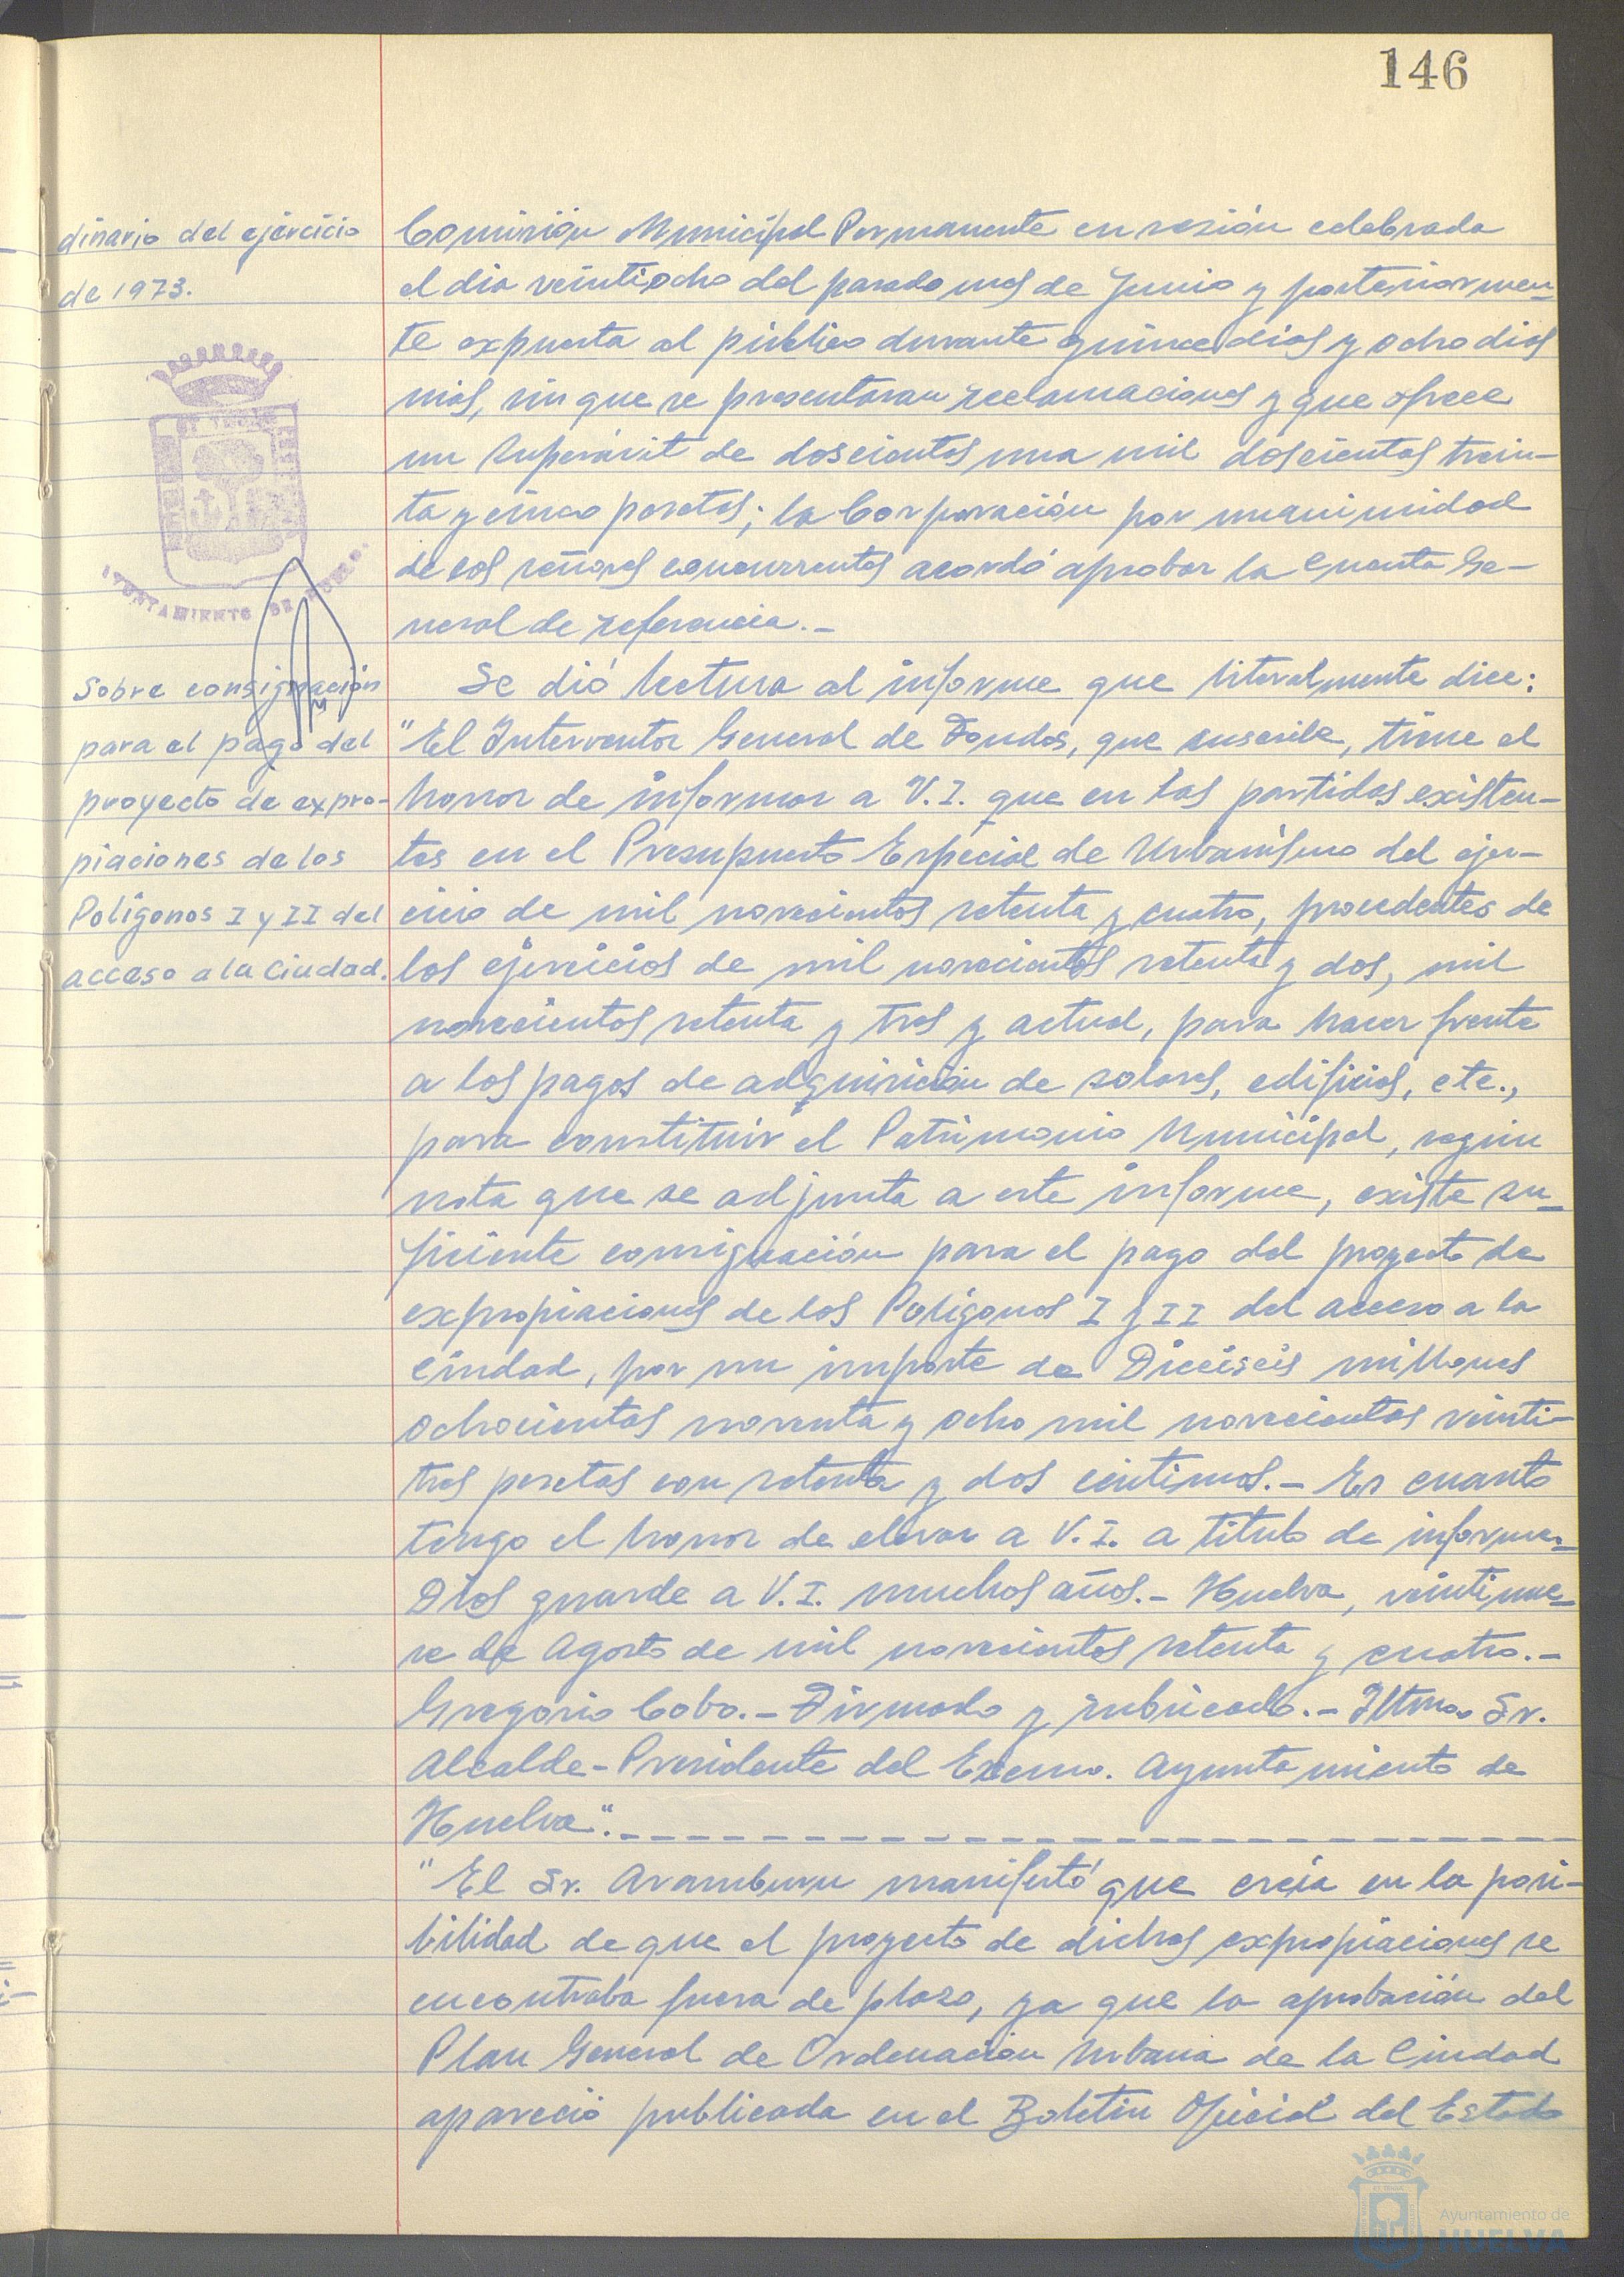 146
dinario del ejercicio
de 1973.
AYUNTAMIENTO DE HUELVA.
Sobre consignación
para el pago del
proyecto de expro-
piaciones de los
Polígonos I y II del
acceso a la Ciudad.
Comisión Municipal Permanente en sesión celebrada
el dia veintiocho del pasado mes de Junio y posteriormen-
te expuesta al público durante quince dias y ocho dias
más, sin que se presentaran reclamaciones y que ofrece
un superávit de doscientas una mil doscientas trein-
ta y cinco pesetas; la Corporación por unanimidad
de los señores concurrentes acordó aprobar la Cuenta Ge-
neral de referencia.-
Se dió lectura al informe que literalmente dice:
"El Interventor General de Fondos, que suscribe, tiene el
honor de informar a V.I. que en las partidas existen-
tes en el Presupuesto Especial de Urbanismo del ejer-
cicio de mil novecientos setenta y cuatro, procedentes de
los ejercicios de mil novecientos setenta y dos, mil
novecientos setenta y tres y actual, para hacer frente
a los pagos de adquisición de solares, edificios, etc.,
para constituir el Patrimonio Municipal, según
nota que se adjunta a este informe, existe su-
ficiente consignación para el pago del proyecto de
expropiaciones de los Polígonos I y II del acceso a la
Ciudad, por un importe de Dieciseis millones
ochocientas noventa y ocho mil novecientas veinti-
tres pesetas con setenta y dos céntimos.- Es cuanto
tengo el honor de elevar a V.I. a título de informe.-
Dios guarde a V.I. muchos años.- Huelva, veintinue-
ve de Agosto de mil novecientos setenta y cuatro.-
Gregorio Cobo.- Firmado y rubricado.- Iltmo. Sr.
Alcalde-Presidente del Excmo. Ayuntamiento de
Huelva".
"El Sr. Aramburu manifestó que creía en la posi-
bilidad de que el proyecto de dichas expropiaciones se
encontraba fuera de plazo, ya que la aprobación del
Plan General de Ordenación Urbana de la Ciudad
apareció publicada en el Boletin Oficial del Estado
Ayuntamiento de
HUELVA